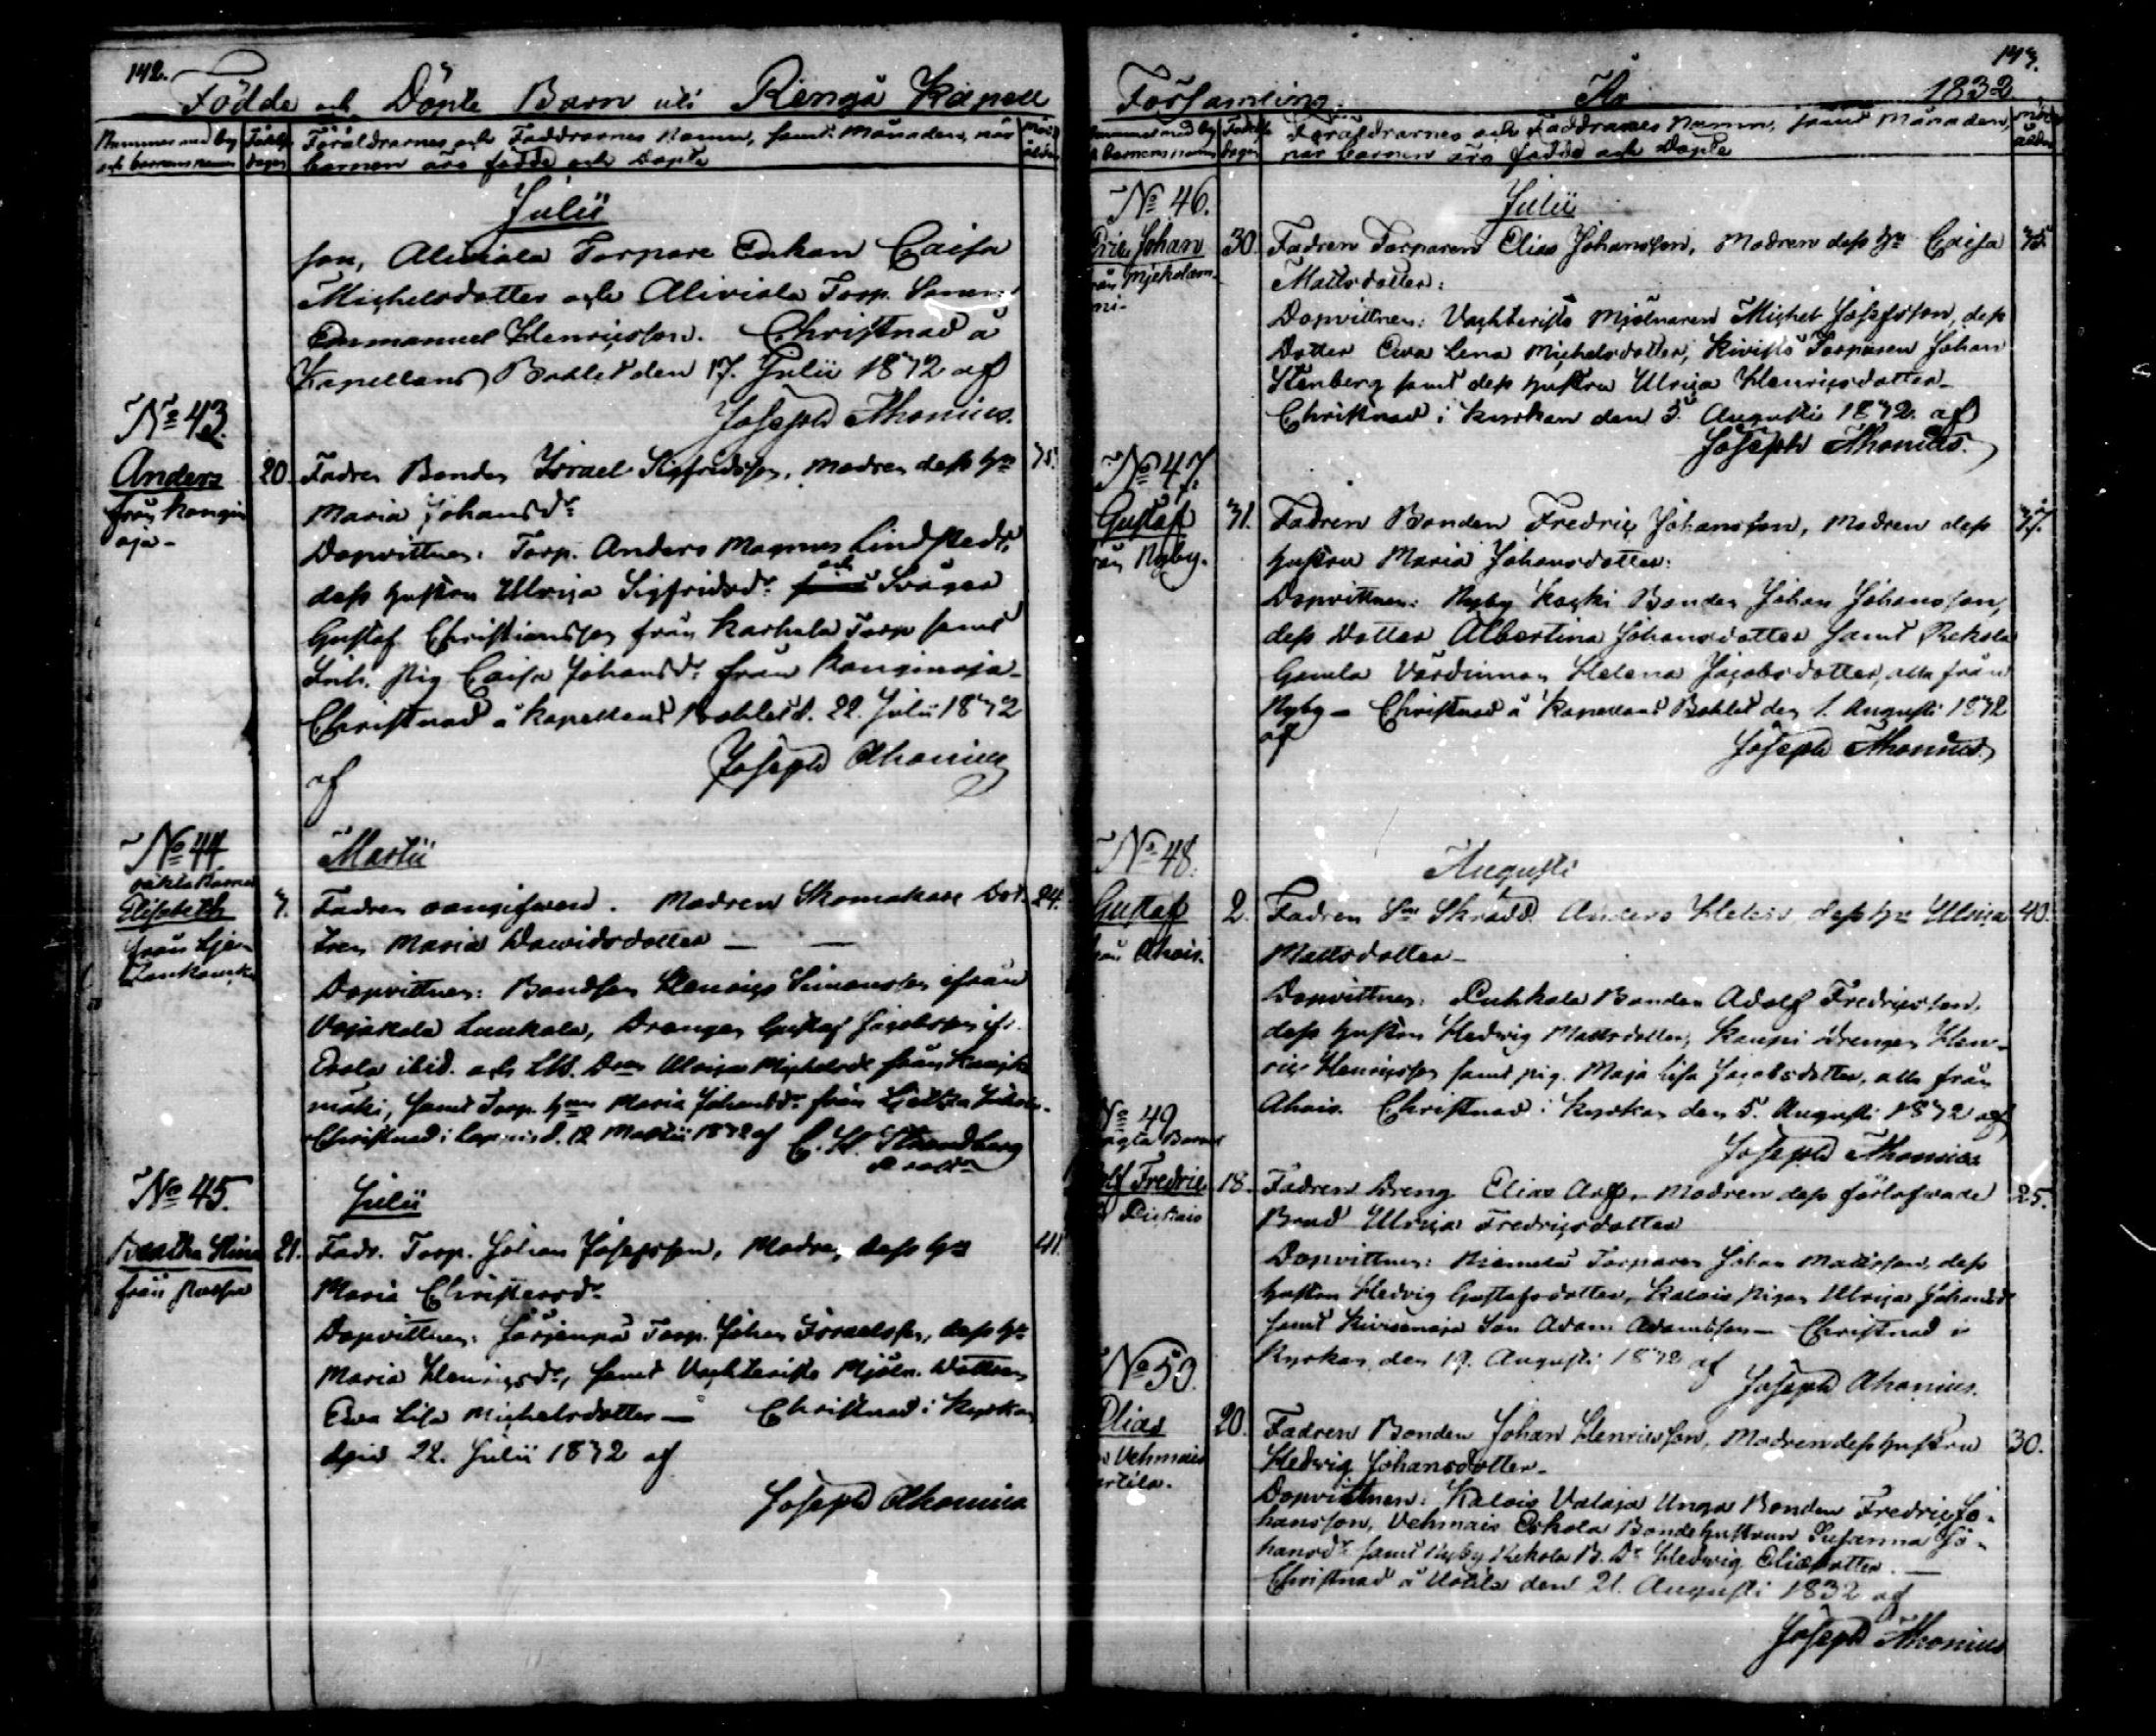 142.
Födde och Döpte Barn uti Rengå Kapell
Nummer med by och barnens namn
Födelse dagen
Föräldrarnes och Faddrarnes Namn, samt Månaden, när
barnen äro födde och Döpte
Julii
son, Alwiala Torpare Enkan Caisa
Michelsdotter och Aliviala Torp. Sonen
Emmanuel Henricsson. Christnad å
Kapellans Bohlet den 17. Julii 1832 af
Joseph Ahonius.
No 43.
Anders
från Kangin
oja -
20.
Fadren Bonden Israel Sigfridsson, Modren dess Hu
35.
Maria Johansdr
Dopvittnen: Torp. Anders Magnus Lindstedt,
dess hustru Ulrica Sigfridsdr och Svåger
Gustaf Christiansson från Karhula Torp samt
Inh. Pig. Caisa Johansdr från Kanginoja -
Christnad å Kapellans Bohlet d. 22. Julii 1832
af
Joseph Ahonius
No 44.
oäkta Barnet
Elisabeth
från
Martii
Fadren oangifwen. Modren Skomakare Dot-
24.
tren Maria Dawidsdotter — —
Dopvittnen: Bondson Henrics Simonsson ifrån
Laukola, Drengen Gustaf Jacobsson
ibid. och Ulrica Michelsdr från
mäki, samt Torp. Maria Johansdr från
Christnad i d. 12 Martii 1832 af
No 45.
Beatha Stina
från
21.
Julii
Fadr. Torp. Johan Josefsson, Modren dess Hu
41.
Maria Christersdr
Dopvittnen: Torp. Johan Israelsson, dess Hu
Maria Henricsdr, samt Vachteristo Mjöln. Dottren
Ewa Lisa Michelsdotter — Christnad i Kyrkan
den 22. Julii 1832 af
Joseph Ahonius
143.
Församling. År 1832
Nummer med by
och barnens namn
Födelse dagen
Föräldrarnes och Faddrarnes Namn, samt Månaden,
när barnen äro födde och Döpte
No 46.
Eric Johan
30.
Julii
Fadren Torparen Elias Johansson, Modren dess Hu Caisa
35.
Mattsdotter:
Dopvittnen: Vachteristo Mjölnaren Michel Josefsson, dess
Dotter Ewa Lena Michelsdotter, Kivistö Torparen Johan
Stenberg samt dess hustru Ulrica Henricsdotter -
Christnad i Kyrkan den 5. Augusti 1832. af
Joseph Ahonius.
No 47.
Gustaf
från Nyby.
31.
Fadren Bonden Fredric Johansson, Modren dess
37.
hustru Maria Johansdotter:
Dopvittnen: Nyby Koski Bonden Johan Johansson,
dess Dotter Albertina Johansdotter samt Rekola
Gamla Värdinnan Helena Jacobsdotter, alla från
Nyby - Christnad å Kapellans Bohlet den 1. Augusti 1832
af
Joseph Ahonius
No 48.
Gustaf
från Ahois.
2.
Augusti
Fadren Skrädd. Anders dess Hu Ulrica
40.
Mattsdotter -
Dopvittnen: Puhkala Bonden Adolf Fredricsson,
dess hustru Hedwig Mattsdotter, Kaupi Drengen Hen-
ric Henricsson samt pig. Maja Lisa Jacobsdotter, alla från
Ahois. Christnad i Kyrkan den 5. Augusti 1832 af
Joseph Ahonius
No 49
oägta Barnet
Fredric
18.
Fadren Dreng Elias Modren dess förlofwade
25.
Brud Ulrica Fredricsdotter
Dopvittnen: Torparen Johan Mattsson, dess
hustru Hedvig Gustafsdotter, Kalois Pigan Ulrica Johansdr
samt Kivisenoja Son Adam Adamsson - Christnad i
Kyrkan den 19. Augusti 1832 af
Joseph Ahonius.
No 50.
Elias
Vehmais
20.
Fadren Bonden Johan Henricsson, Modren dess hustru
30.
Hedwig Johansdotter -
Dopvittnen: Kalois Valaja Unga Bonden Fredric Jo-
hansson, Vehmais Eskola Bondehustrun Susanna Jo-
hansdr samt Nyby Rekola B. Dr Hedwig Eliædotter. —
Christnad å Uotila den 21. Augusti 1832 af
Joseph Ahonius